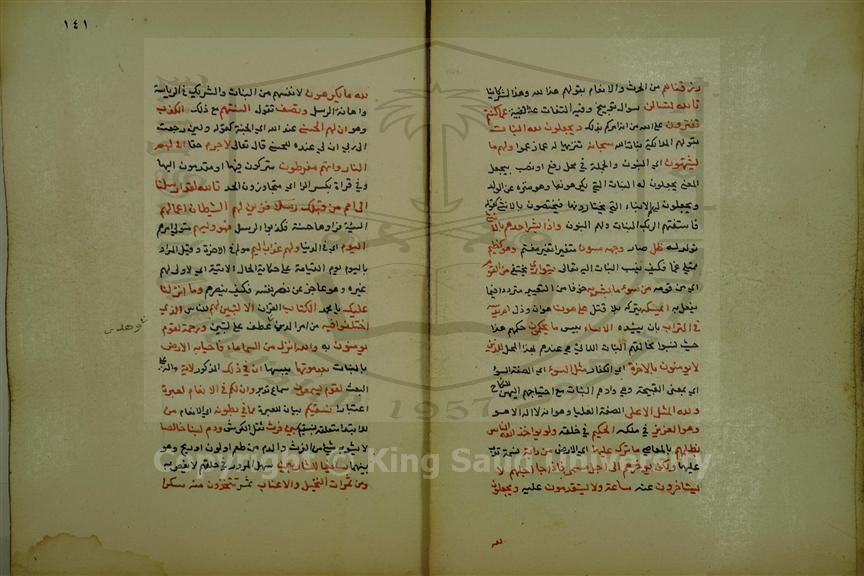 رزقناهم من الحرث والانعام بقولهم هذا لله وهذا لشركائنا
تالله لتسألن سوال توبيخ وفيه التفات عن الغيبة عما كنتم
تفترون على الله من انه امركم بذلك ويجعلون لله البنات
بقولهم الملائكة بنات الله سبحانه تنزيها له عما زعموا ولهم ما
يشتهون اي البنون والجملة في محل رفع او نصب بيجعل
المعنى يجعلون له البنات التي يكرهونها وهو منزه عن الولد
ويجعلون لهم الابناء التي يختارونها فيختصون بالابناء كقوله
فاستفتهم الربك البنات ولهم البنون واذا بشر احدهم بالانثى
تولد له ظل صار وجهه مسودا متغيرا تغير مغتم وهو كظيم
ممتلئ غما فكيف تنسب البنات اليه تعالى يتوارى يختفي من القوم
اي من قومه من سوء ما بشر به خوفا من التعيير مترددا فيما
يفعل به ايمسكه يتركه بلا قتل على هون هوان وذل ام يدسه
في التراب بان يئده الا ساء بئس ما يحكمون حكمهم هذا
حيث نسبوا لخالقهم البنات اللاتي هي عندهم بهذا المحل للذين
لا يومنون بالاخرة اي الكفار مثل السوء اي الصفة السوأى
اي بمعنى القبيحة وهي وأدهم البنات مع احتياجهم اليهن للنكاح
ولله المثل الاعلى الصفة العليا وهو انه لا اله الا هو
وهو العزيز في ملكه الحكيم في خلقه ولو يواخذ الله الناس
بظلمهم بالمعاصي ما ترك عليها اي الارض من دابة نسمة تدب
عليها ولكن يوخرهم الى اجل مسمى فاذا جا اجلهم لا
يستاخرون عنه ساعة ولا يستقدمون عليه ويجعلون
لله
١٤١
لله ما يكرهون لانفسهم من البنات والشريك في الرياسة
واهانة الرسل وتصف تقول السنتهم مع ذلك الكذب
وهو ان لهم الحسنى عند الله اي الجنة كقوله ولئن رجعت
الى ربي ان لي عنده للحسنى قال تعالى لا جرم حقا ان لهم
النار وانهم مفرطون متركون فيها او مقدمون اليها
وفي قراة بكسر الرا اي متجاوزون الحد تالله لقد ارسلنا
الى امم من قبلك رسلا فزين لهم الشيطان اعمالهم
السيئة فراوها حسنة فكذبوا الرسل فهو وليهم متولي امورهم
اليوم اي في الدنيا ولهم عذاب اليم مولم في الاخرة وقيل المراد
باليوم يوم القيامة على حكاية الحال الاتية اي لا ولي لهم
غيره وهو عاجز عن نصر نفسه فكيف ينصرهم وما انزلنا
عليك يا محمد الكتاب القران الا لتبين لهم للناس الذي
اختلفوا فيه من امر الدين وهدى عطف على لتبين ورحمة لقوم
يومنون به والله انزل من السماء ماء فاحيا به الارض
بالنبات بعد موتها يبسها ان في ذلك المذكور لاية دالة على
البعث لقوم يسمعون سماع تدبر وان لكم في الانعام لعبرة
اعتبارا نسقيكم بيان للعبرة مما في بطونه اي الانعام من
للابتداء متعلقة بنسقيكم بين فرث ثفل الكرش ودم لبنا خالصا
لا يشوبه شي من الفرث والدم من طعم او لون او ريح وهو
بينهما سائغا للشاربين سهل المرور في حلقهم لا يغص به
ومن ثمرات النخيل والاعناب ثمر تتخذون منه سكرا
Copyright © King Saud University
1957